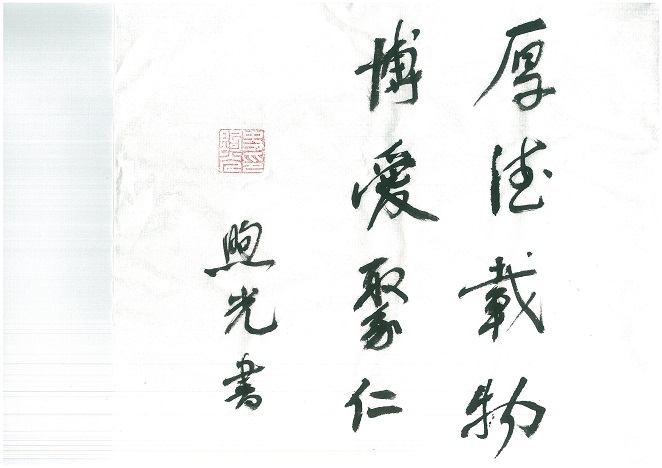 厚德载物
博爱聚仁
煦光書